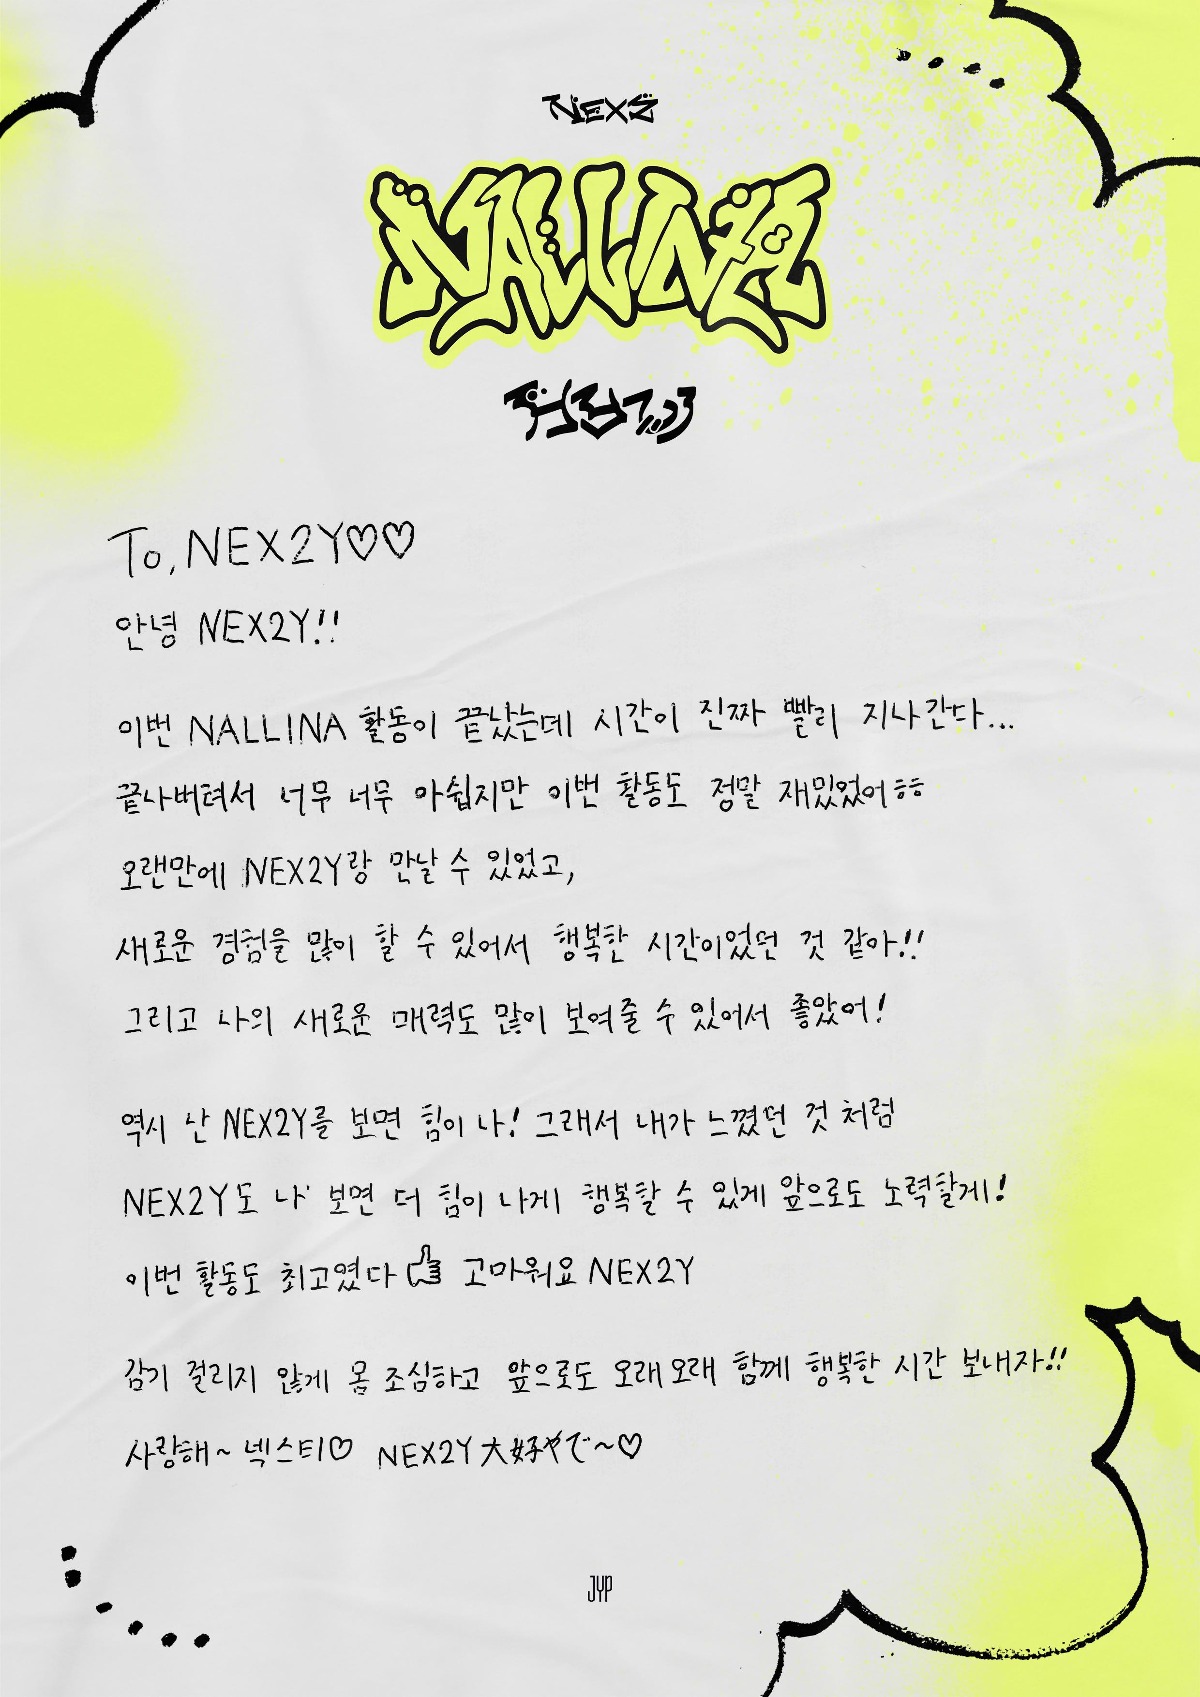 NEXZ
NALLINA
To, NEX2Y♡♡
안녕 NEX2Y!!
이번 NALLINA 활동이 끝났는데 시간이 진짜 빨리 지나간다...
끝나버려서 너무 너무 아쉽지만 이번 활동도 정말 재밌었어ㅎㅎ
오랜만에 NEX2Y랑 만날 수 있었고,
새로운 경험을 많이 할 수 있어서 행복한 시간이었던 것 같아!!
그리고 나의 새로운 매력도 많이 보여줄 수 있어서 좋았어!
역시 난 NEX2Y를 보면 힘이 나! 그래서 내가 느꼈던 것 처럼
NEX2Y도 나 보면 더 힘이 나게 행복할 수 있게 앞으로도 노력할게!
이번 활동도 최고였다👍 고마워요 NEX2Y
감기 걸리지 않게 몸 조심하고 앞으로도 오래오래 함께 행복한 시간 보내자!!
사랑해~ 넥스티♡ NEX2Y 大好やで~♡
JYP